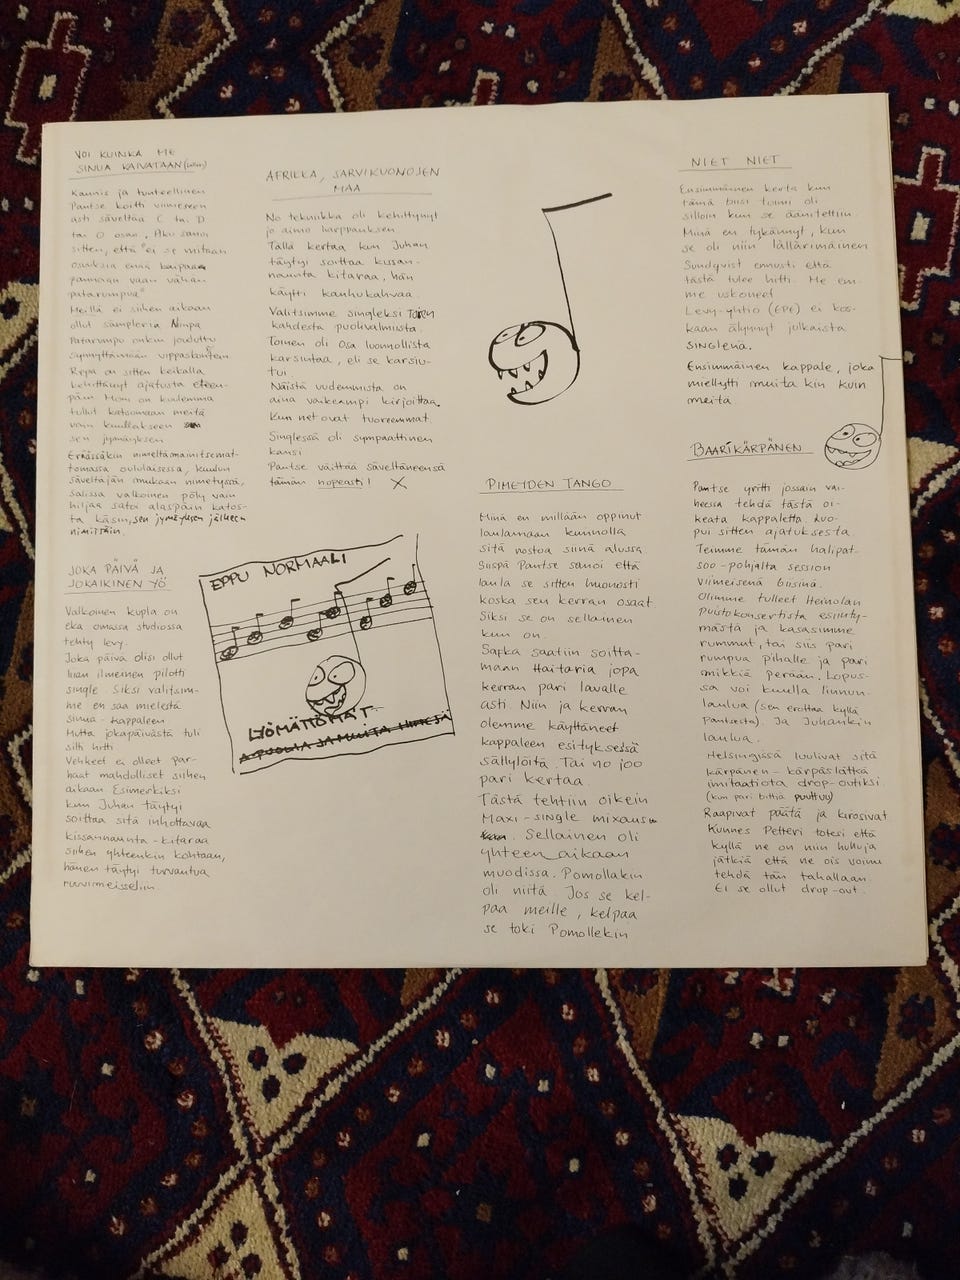 VOI KUINKA ME
SINUA KAIVATAAN (LIVE)
Kaunis ja tunteellinen
Pantse koitti viimeseen
asti säveltää C tai D
tai O osan. Aku sanoi
sitten, että "ei se mitään
osuuksia enää kaipaa
pannaan vaan vähän
patarumpua"
Meillä ei siihen aikaan
ollut sampleria Niinpä
Patarumpu onkin jouduttu
synnyttämään vippaskonstein
Repa on sitten keikalla
kehittänyt ajatusta eteen-
päin Moni on kuulemma
tullut katsomaan meitä
vain kuullakseen
sen jymäyksen
Eräässäkin nimeltämainitsemat-
tomassa oululaisessa, kuulun
säveltäjän mukaan nimetyssä,
salissa valkoinen pöly vain
hiljaa satoi alaspäin katos-
ta käsin, sen jymäyksen jälkeen
nimittäin.
JOKA PÄIVÄ JA
JOKAIKINEN YÖ
Valkoinen kupla on
eka omassa studiossa
tehty levy.
Joka päivä olisi ollut
liian ilmeinen pilotti
single. Siksi valitsim-
me en saa mielestä
sinua - kappaleen
Mutta jokapäivästä tuli
silti hitti
Vehkeet ei olleet par-
haat mahdolliset siihen
aikaan Esimerkiksi
kun Juhan täytyi
soittaa sitä inhottavaa
kissannaunta - kitaraa
siihen yhteenkin kohtaan,
hänen täytyi turvautua
ruuvimeisseliin.
AFRIKKA, SARVIKUONOJEN
MAA
No tekniikka oli kehittynyt
jo aimo harppauksen
Tällä kertaa kun Juhan
täytyi soittaa kissan-
naunta kitaraa, hän
käytti kanhukahvaa.
Valitsimme singleksi TOREN
kahdesta puolivalmiista.
Toinen oli Osa luonnollista
karsintaa, eli se karsiu-
tui.
Näistä uudemmista on
aina vaikeampi kirjoittaa.
Kun net ovat tuoreemmat.
Singlessä oli sympaattinen
kansi
Pantse väittää säveltäneensä
tämän nopeasti! X
EPPU NORMAALI
LYÖMÄTTÖMÄT
A-PUOLIA JA MUITA HITTEJÄ
PIMEYDEN TANGO
Minä en millään oppinut
laulamaan kunnolla
sitä nostoa siinä alussa.
Siispä Pantse sanoi että
laula se sitten huonosti
koska sen kerran osaat.
Siksi se on sellainen
kun on.
Safka saatiin soitta-
maan Haitaria jopa
kerran pari lavalle
asti. Niin ja kerran
olemme käyttäneet
kappaleen esityksessä
säilylöitä. Tai no joo
pari kertaa.
Tästä tehtiin oikein
Maxi-single mixaus
Sellainen oli
yhteen aikaan
muodissa. Pomollakin
oli niitä. Jos se kel-
paa meille, kelpaa
se toki Pomollekin
NIET NIET
Ensimmäinen kerta kun
tämä biisi toimi oli
silloin kun se äänitettiin.
Minä en tykännyt, kun
se oli niin lällärimäinen
Sundqvist ennusti että
tästä tulee hitti. Me em-
me uskoneet
Levy-yhtiö (EPE) ei kos-
kaan älynnyt julkaista
SINGLENÄ.
Ensimmäinen kappale, joka
miellytti muita kin kuin
meitä
BAARIKÄRPÄNEN
Pantse yritti jossain vai-
heessa tehdä tästä oi-
keata kappaletta. Luo-
pui sitten ajatuksesta.
Teimme tämän halipat-
soo - pohjalta session
viimeisenä biisinä.
Olimme tulleet Heinolan
puistokonsertista esiinty-
mästä ja kasasimme
rummut, tai siis pari
rumpua pihalle ja pari
smikkiä perään. Lopus-
sa voi kuulla linnun-
laulua (sen erottaa kyllä
Pantsesta). Ja Juhankin
laulua.
Helsingissä luulivat sitä
kärpänen - kärpäslätkä
imitaatiota drop-outiksi
(kun pari bittiä puuttuu)
Raapivat päätä ja kirosivat
Kunnes Petteri totesi että
kyllä ne on niin hulluja
jätkiä että ne ois voinu
tehdä tän tahallaan.
Ei se ollut drop-out.